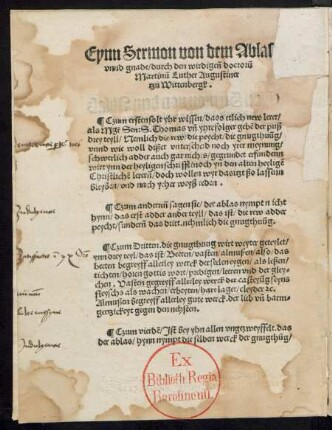 Eynn Sermon von dem Ablas
vnnd gnade/durch den wirdigenn doctorn̄
Martinū Luther Augustiner
zu Wittenbergk.
¶ Czum ersten solt yhr wissen/das etlich new lerer/
als Mgr Sen: S. Thomas vñ yhre folger gebē der puß
drey teyll/ Nemlich die rew/die peycht/die gnugthuūg/
vnnd wie woll dißer vnterscheid noch yrer meynung/
schwerlich adder auch gar nichts/ gegrundet erfundenn
wirt ynn der heyligen schrifft/noch yn den alten heyligē
Christlichē lerern/ doch wollen wyr das itzt ßo lassenn
bleyben/ vnd nach yrher weyß reden.
¶ Czum andernn sagen sie/ der ablas nympt n icht
hynn/ das erst adder ander teyll/ das ist/ die rew adder
peycht/sundern das dritt/nemlich die gnugthuūg.
¶ Czum Dritten. die gnugthuūg wirt weyter geteylet/
ynn drey teyl/ das ist/ Beeten/ vasten/ almußen/ also/ das
beeten begreyff allerley werck der selen eygen/ als leßen/
tichten/ horen gottis wort/ predigen/ leeren vnd der gley-
chen. Vasten begreyff allerley werck der casteyūg seyns
fleyschs/ als wachen/ erbeyten/ hart lager/ cleyder ꝛc.
Almußen begreyff allerley gute werck der lieb vñ barm-
hertzickeyt gegen den nehsten.
¶ Czum vierdē/ Ist bey yhn allen vngezweyffelt. das
der ablas/ hynn nympt die selben werck der gnugthūg/
Indulgentie
Indulgentie
Ex
Biblioth. Regia
Berolinenſi.